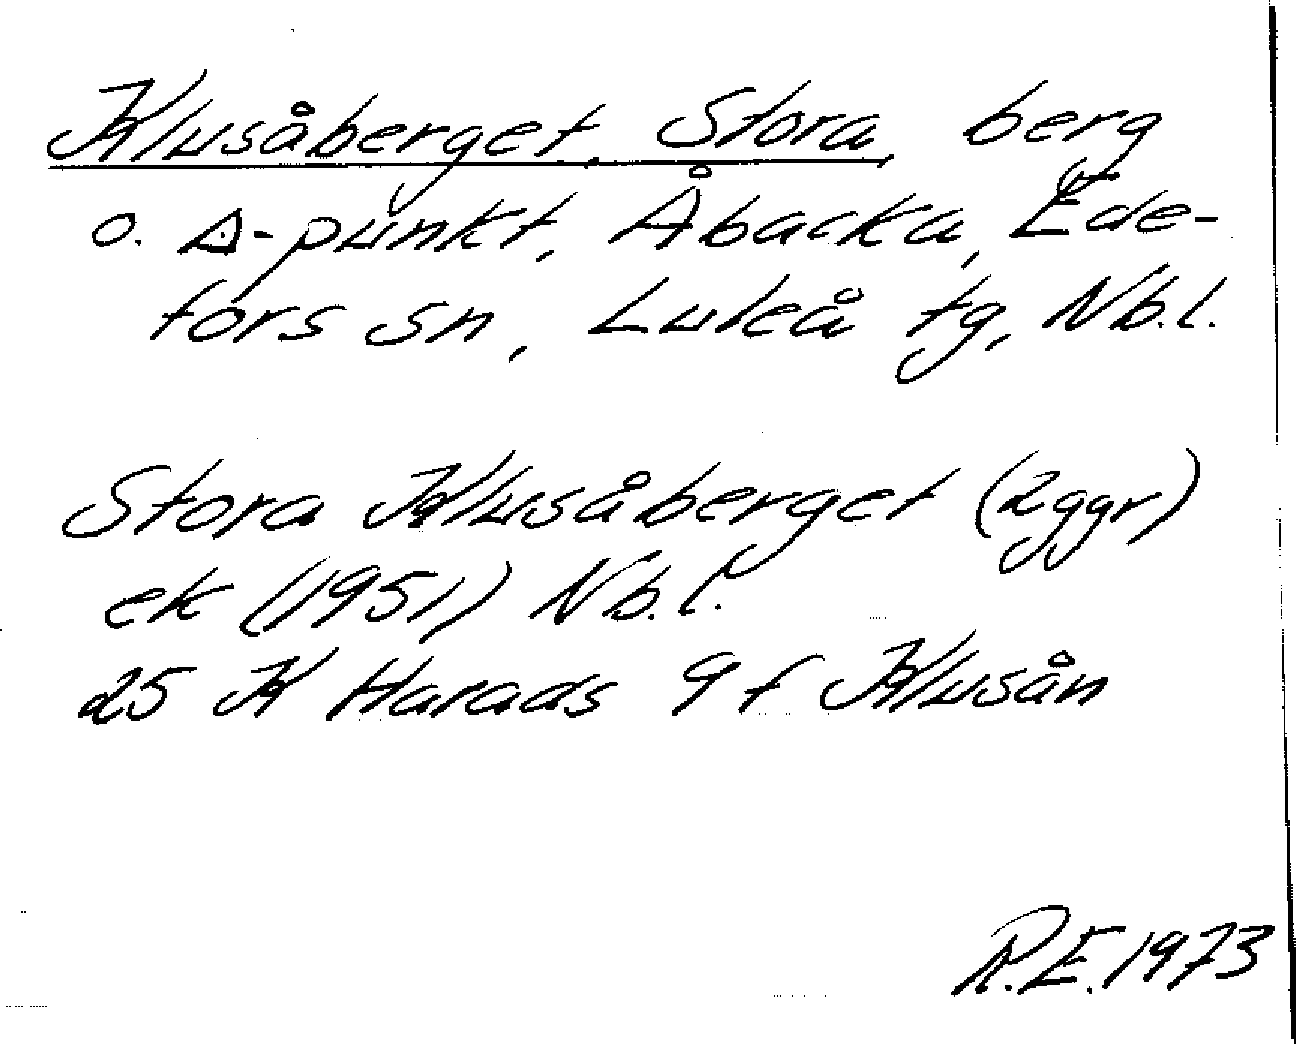 Klusåberget, Stora, berg
o. Δ-punkt, Åbacka, Ede-
fors sn, Luleå tg, Nb.l.
Stora Klusåberget (2ggr)
ek (1951) Nb.l.
25 K Harads 9 f Klusån
R.E. 1973